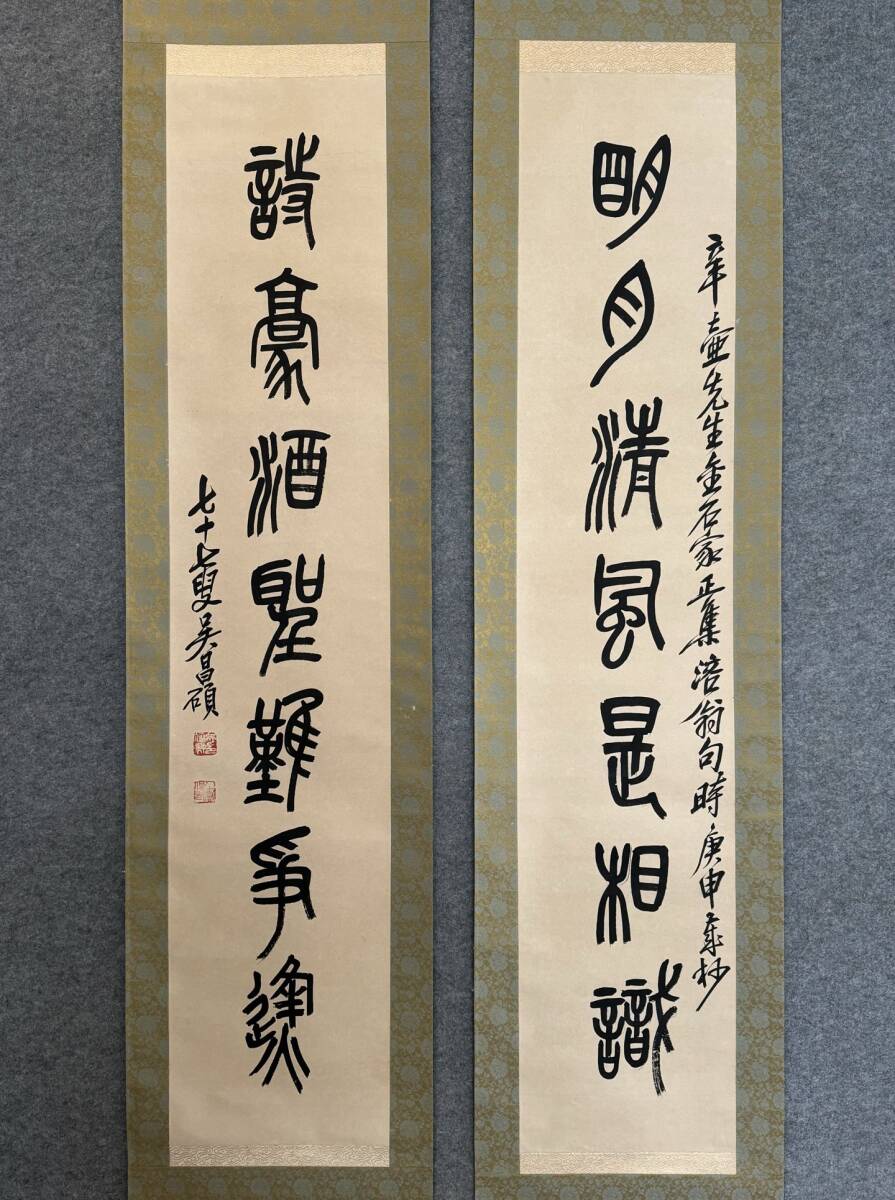 辛壺先生金石家正集涪翁句時庚申歲杪
明月清風是相識
詩豪酒聖難爭逢
七十七叟吳昌碩